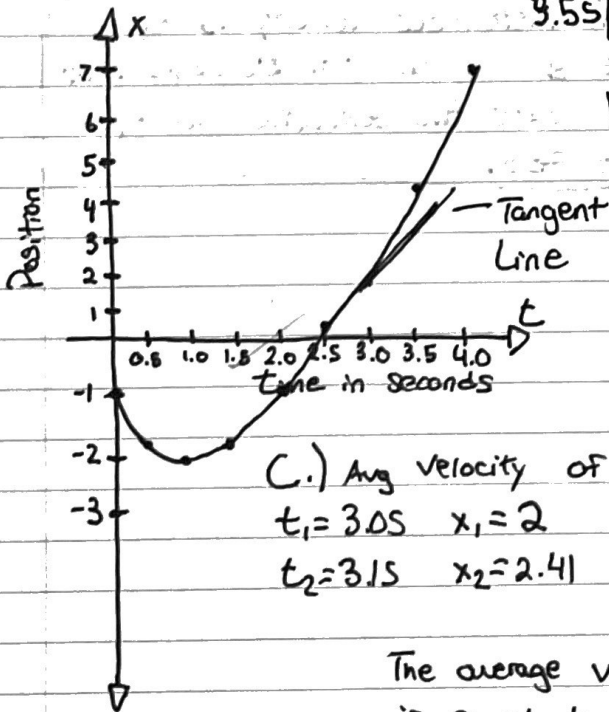 3.5s
x
7
6
5
4
3
2
1
-1
-2
-3
Position
Tangent
Line
t
0.5 1.0 1.5 2.0 2.5 3.0 3.5 4.0
time in seconds
C.) Avg velocity of
t₁=3.0s x₁=2
t₂=3.1s x₂=2.41
The average v